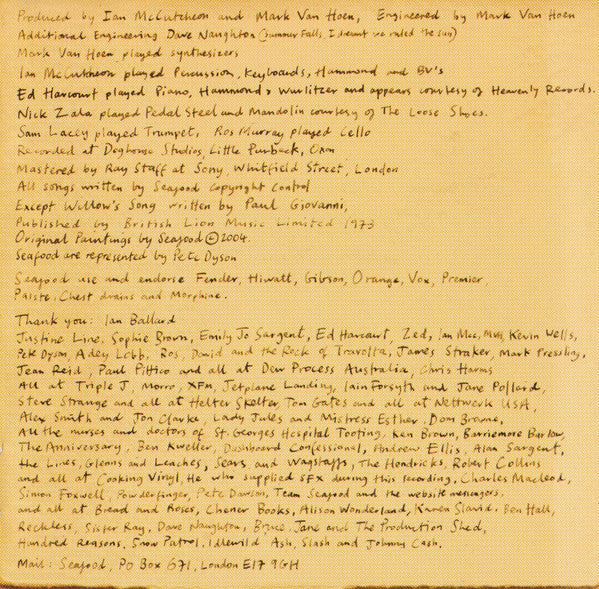 Produced by Ian McCutcheon and Mark Van Hoen, Engineered by Mark Van Hoen
Additional Engineering Dave Naughton (Summer Falls, I dreamt we ruled the sun)
Mark Van Hoen played synthesizers
Ian McCutcheon played Percussion, Keyboards, Hammond and BV's
Ed Harcourt played Piano, Hammond, Wurlitzer and appears courtesy of Heavenly Records.
Nick Zala played Pedal Steel and Mandolin courtesy of The Loose Shoes.
Sam Lacey played Trumpet, Ros Murray played Cello
Recorded at Doghouse Studios, Little Purbeck, Oxon
Mastered by Ray Staff at Sony, Whitfield Street, London
All songs written by Seafood Copyright Control
Except Willow's Song written by Paul Giovanni,
Published by British Lion Music Limited 1973
Original Paintings by Seafood © 2004.
Seafood are represented by Pete Dyson
Seafood use and endorse Fender, Hiwatt, Gibson, Orange, Vox, Premier,
Paiste, Chest drains and Morphine.
Thank you: Ian Ballard
Justine Line, Sophie Brown, Emily Jo Sargent, Ed Harcourt, Zed, Ian Mcc, MVH, Kevin Wells,
Pete Dyson, Adey Lobb, Ros, David and the Rock of Travolta, James Straker, Mark Pressley,
Jean Reid, Paul Pittico and all at Dew Process Australia, Chris Harms
All at Triple J, Morro, XFm, Jetplane Landing, Iain Forsyth and Jane Pollard,
Steve Strange and all at Helter Skelter, Tom Gates and all at Nettwerk USA,
Alex Smith and Jon Clarke, Lady Jules and Mistress Esther, Dom Browne,
All the nurses and doctors of St. Georges Hospital Tooting, Ken Brown, Barriemore Barlow,
The Anniversary, Ben Kweller, Dashboard Confessional, Andrew Ellis, Alan Sargent,
the Lines, Glenns and Leaches, Sears and Wagstaffs, The Hendricks, Robert Collins
and all at Cooking Vinyl, He who supplied SFX during this recording, Charles Macleod,
Simon Foxwell, Powderfinger, Pete Dawson, Team Seafood and the website messagers,
and all at Bread and Roses, Chener Books, Alison Wonderland, Karen Slavid, Ben Hall,
Reckless, Sister Ray, Dave Naughton, Bruce, Jane and The Production Shed,
Hundred Reasons, Snow Patrol, Idlewild Ash, Slash and Johnny Cash.
Mail: Seafood, PO Box 671, London E17 9GH